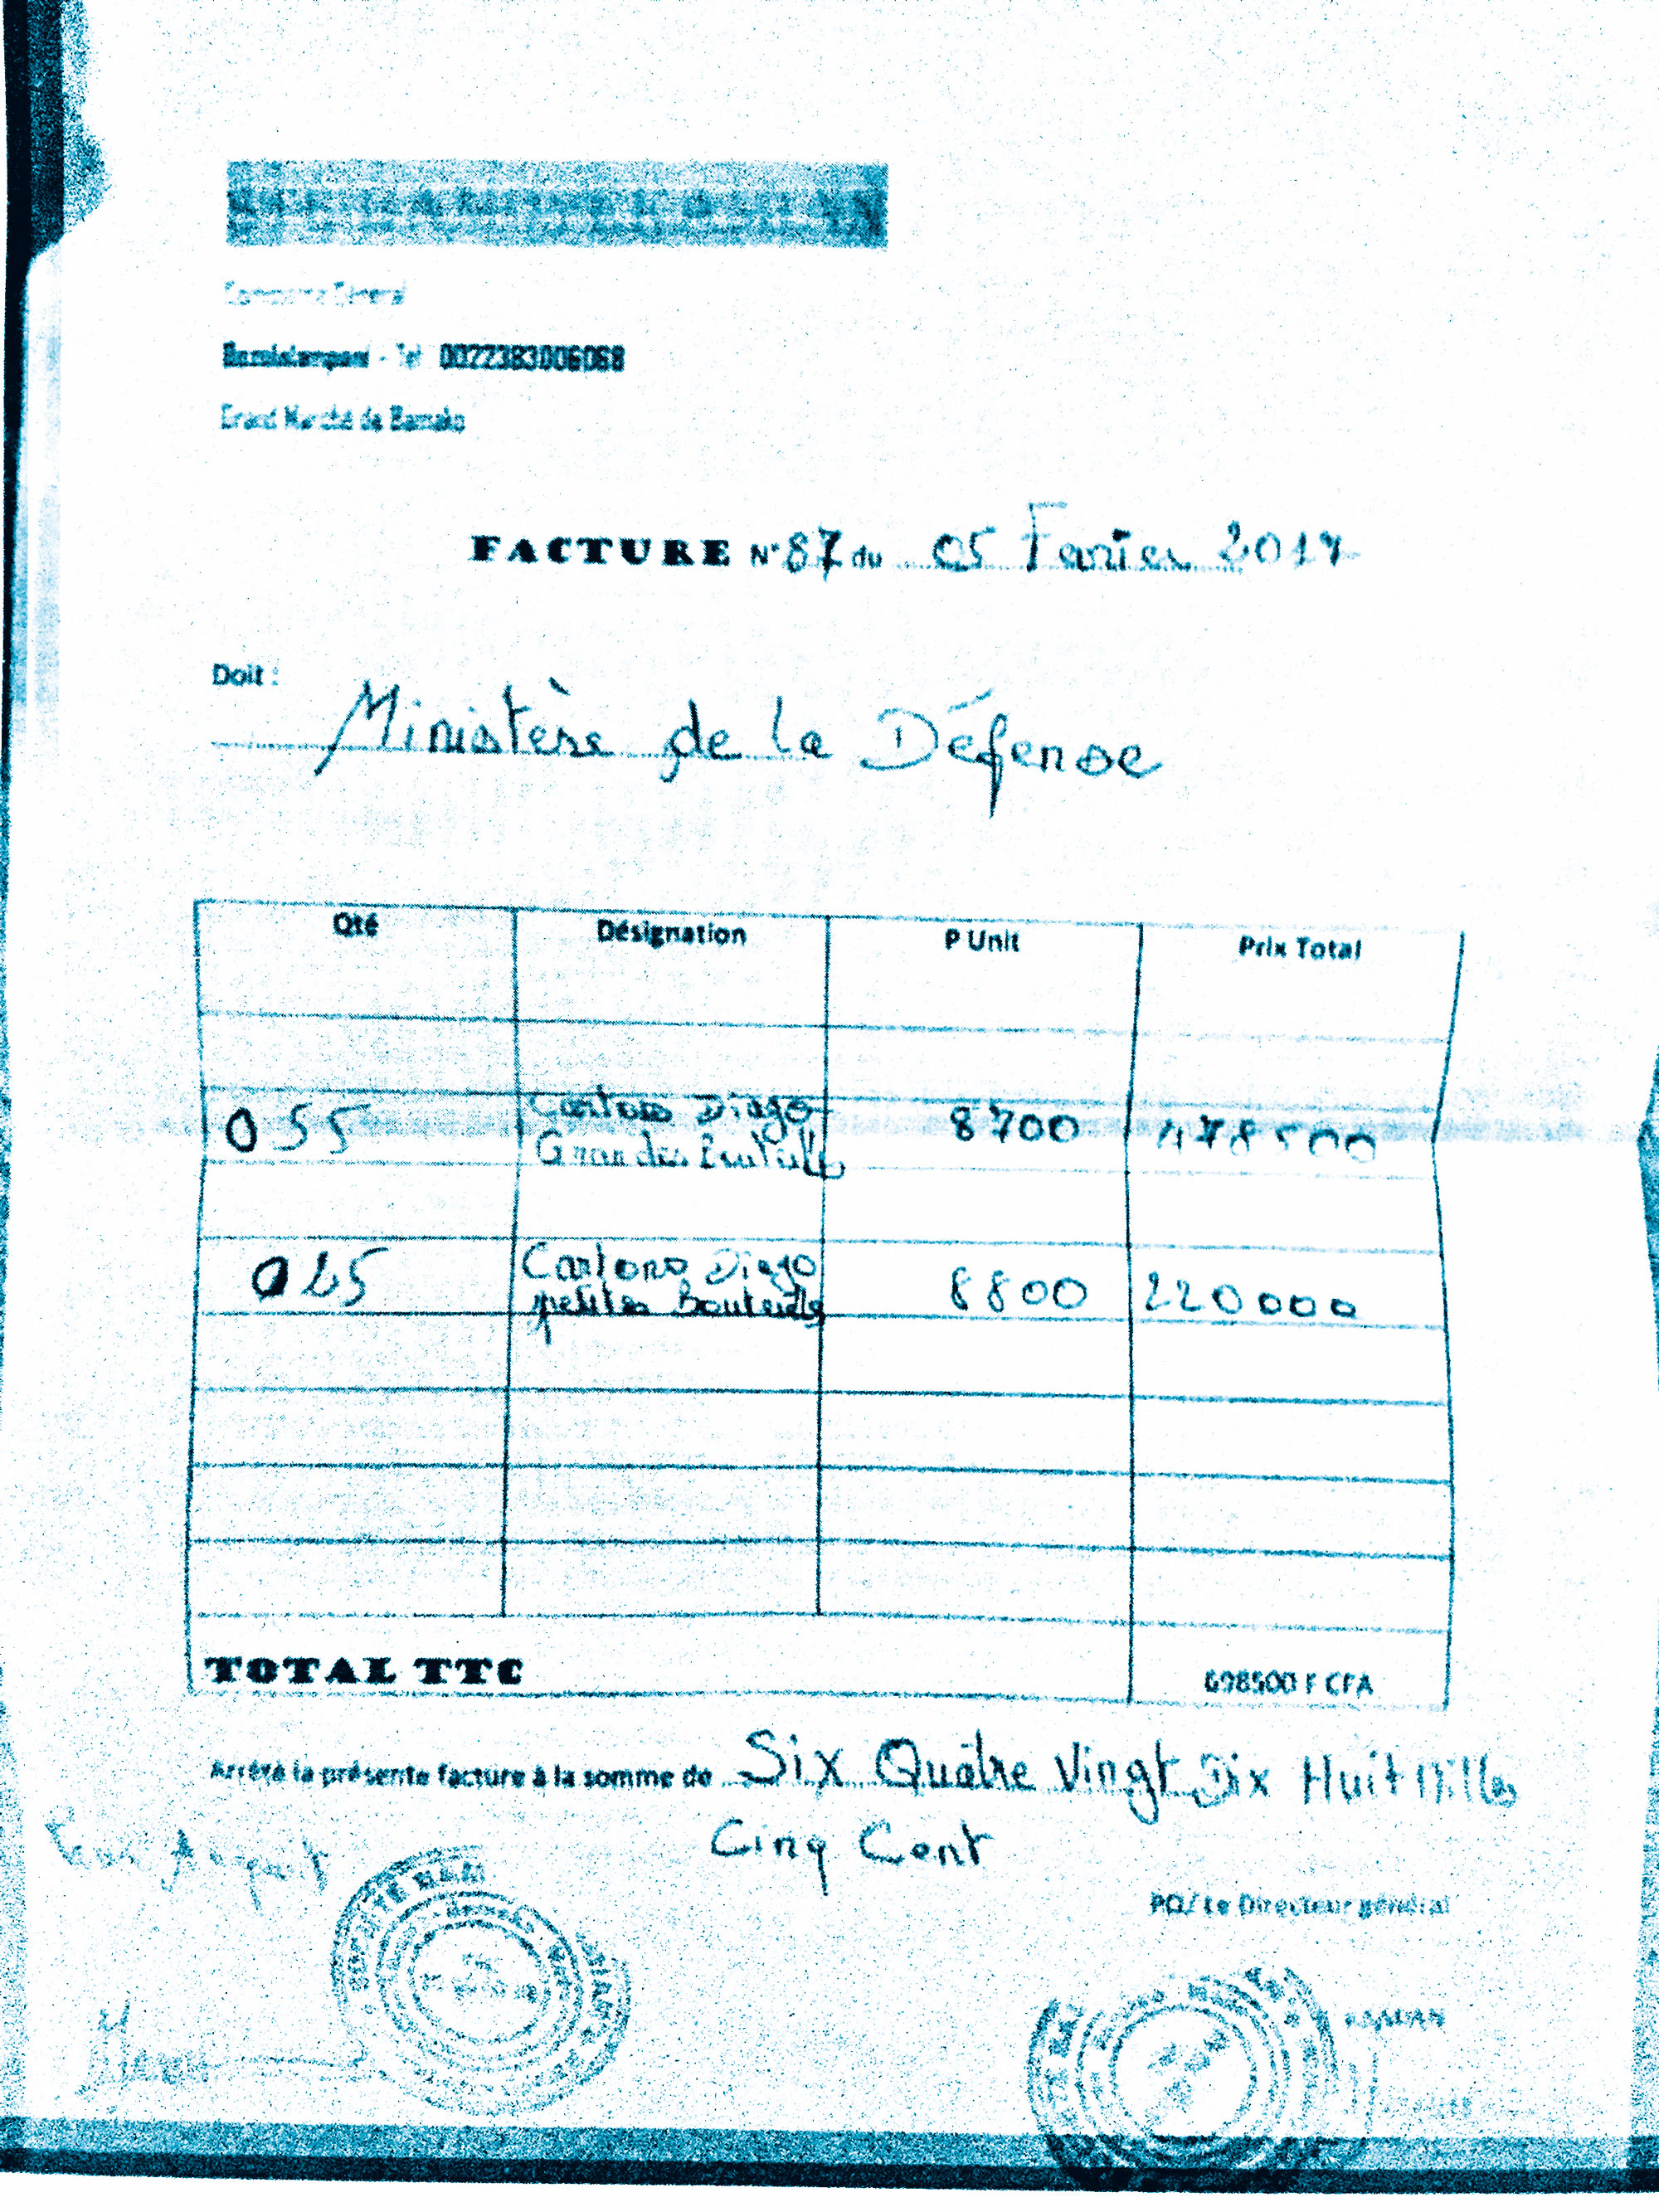 Commerce Général
Tel 0022383006068
Grand Marché de Bamako
FACTURE N° 87 du 05 Fevrier 2017
Doit :
Ministère de la Défense
Qté Désignation P Unit Prix Total
055 Cartons Diago 8700 478500
Grandes Bouteilles
025 Cartons Diago 8800 220000
petites Bouteilles
TOTAL TTC 698500 F CFA
Arrêté la présente facture à la somme de Six Quatre Vingt Dix Huit Milles
Cinq Cent
Pour Acquit
PO/ Le Directeur général